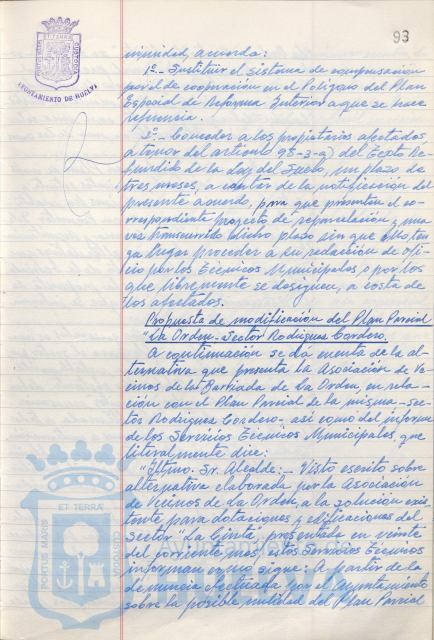 93
AYUNTAMIENTO DE HUELVA
nimidad, acuerda:
1º.- Sustituir el sistema de compensación
por el de cooperación en el Polígono del Plan
Especial de Reforma Interior a que se hace
referencia.
2º.- Conceder a los propietarios afectados,
a tenor del artículo 98-3-a) del Texto Re-
fundido de la Ley del Suelo, un plazo de
tres meses, a contar de la notificación del
presente acuerdo, para que presenten el co-
rrespondiente proyecto de reparcelación, y una
vez transcurrido dicho plazo sin que ello ten-
ga lugar proceder a su redacción de ofi-
cio por los Técnicos Municipales, o por los
que libremente se designen, a costa de
los afectados.
Propuesta de modificación del Plan Parcial
"La Orden- Sector Rodríguez Cordero.
A continuación se dá cuenta de la al-
ternativa que presenta la Asociación de Ve-
cinos de la Barriada de La Orden, en rela-
ción con el Plan Parcial de la misma -sec-
tor Rodríguez Cordero- así como del informe
de los Servicios Técnicos Municipales, que
literalmente dice:
"Iltmo. Sr. Alcalde:- Visto escrito sobre
alternativa elaborada por la Asociación
de Vecinos de La Orden, a la solución exis-
tente para dotaciones y edificaciones del
Sector La Cinta, presentado en veinte
del corriente mes, estos Servicios Técnicos
informan como sigue: A partir de la
denuncia efectuada por el Ayuntamiento
sobre la posible nulidad del Plan Parcial
PORTUS MARIS ET TERRAE CUSTODIA